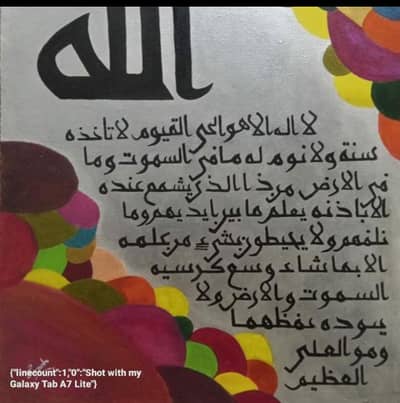 الله
لا اله الا هو الحي القيوم لا تاخذه
سنة ولا نوم له ما في السموت وما
في الارض من ذا الذي يشفع عنده
الا باذنه يعلم ما بين ايديهم وما
خلفهم ولا يحيطون بشيء من علمه
الا بما شاء وسع كرسيه
السموت والارض ولا
يوده حفظهما
وهو العلي
العظيم
{"linecount":1,"0":"Shot with my
Galaxy Tab A7 Lite"}